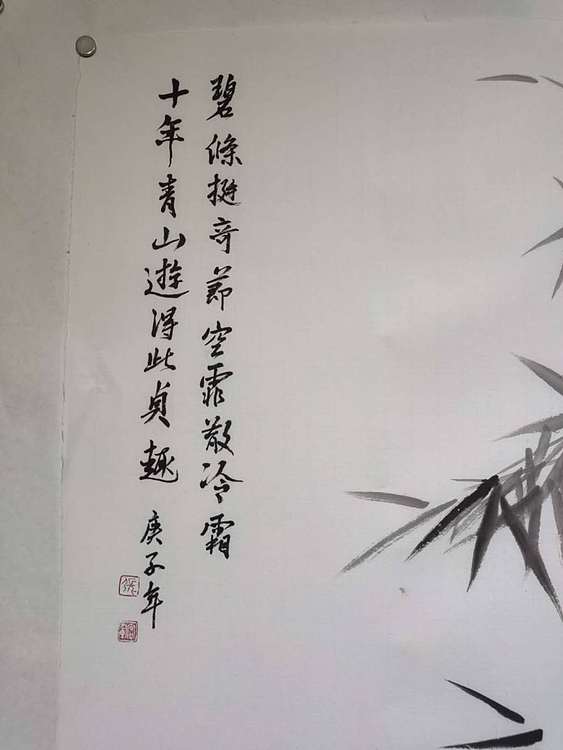 碧條挺奇節空霏散冷霜
十年青山遊得此貞趣
庚子年